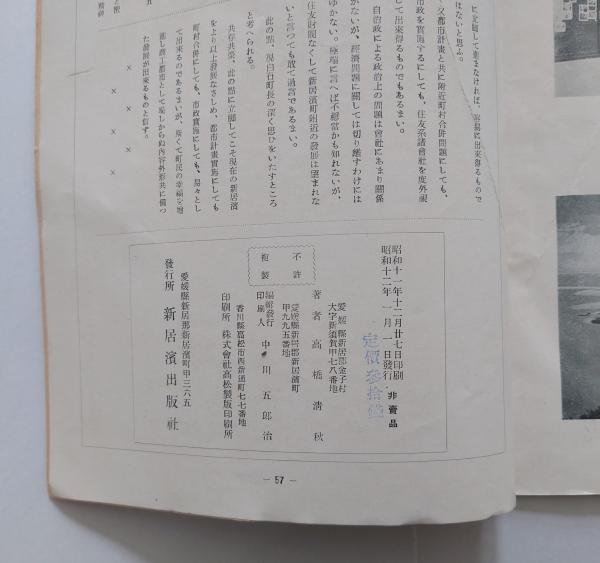 に立脚して進まなければ、容易に出來得るもので
はないと思ふ。
又都市計畫と共に附近町村合併問題にしても、
市政を實施するにしても、住友系諸會社を度外視
して出來得るものでもあるまい。
自治政による政治上の問題は會社にあまり關係
がないが、經濟問題に關しては切り離すわけには
ゆかない。極端に言へば不穩當かも知れないが、
住友財閥なくして新居濱町附近の發展は望まれな
いと言つても敢て過言であるまい。
此の點、現白石町長の深く思ひをいたすところ
と考へられる。
共存共榮、此の點に立脚してこそ現在の新居濱
をより以上發展なさしめ、都市計畫實施にしても
町村合併にしても、市政實施にしても、易々とし
て出來るのであるまいが、斯くて町民の幸福を增
進し商工都市として恥しからぬ內容外形共に備つ
た發展が出來るものと信ず。
× × × × ×
昭和十一年十二月廿七日印刷
昭和十二年一月一日發行・非賣品
定價參拾錢
不許
複製
愛媛縣新居郡金子村
大字新須賀甲七八番地
著者 高橋淸秋
愛媛縣新居郡新居濱町
甲九九五番地
編輯發行
印刷人 中川五郎治
香川縣高松市西新通町七七番地
印刷所 株式會社高松製版印刷所
愛媛縣新居郡新居濱町甲三六五
發行所 新居濱出版社
— 57 —